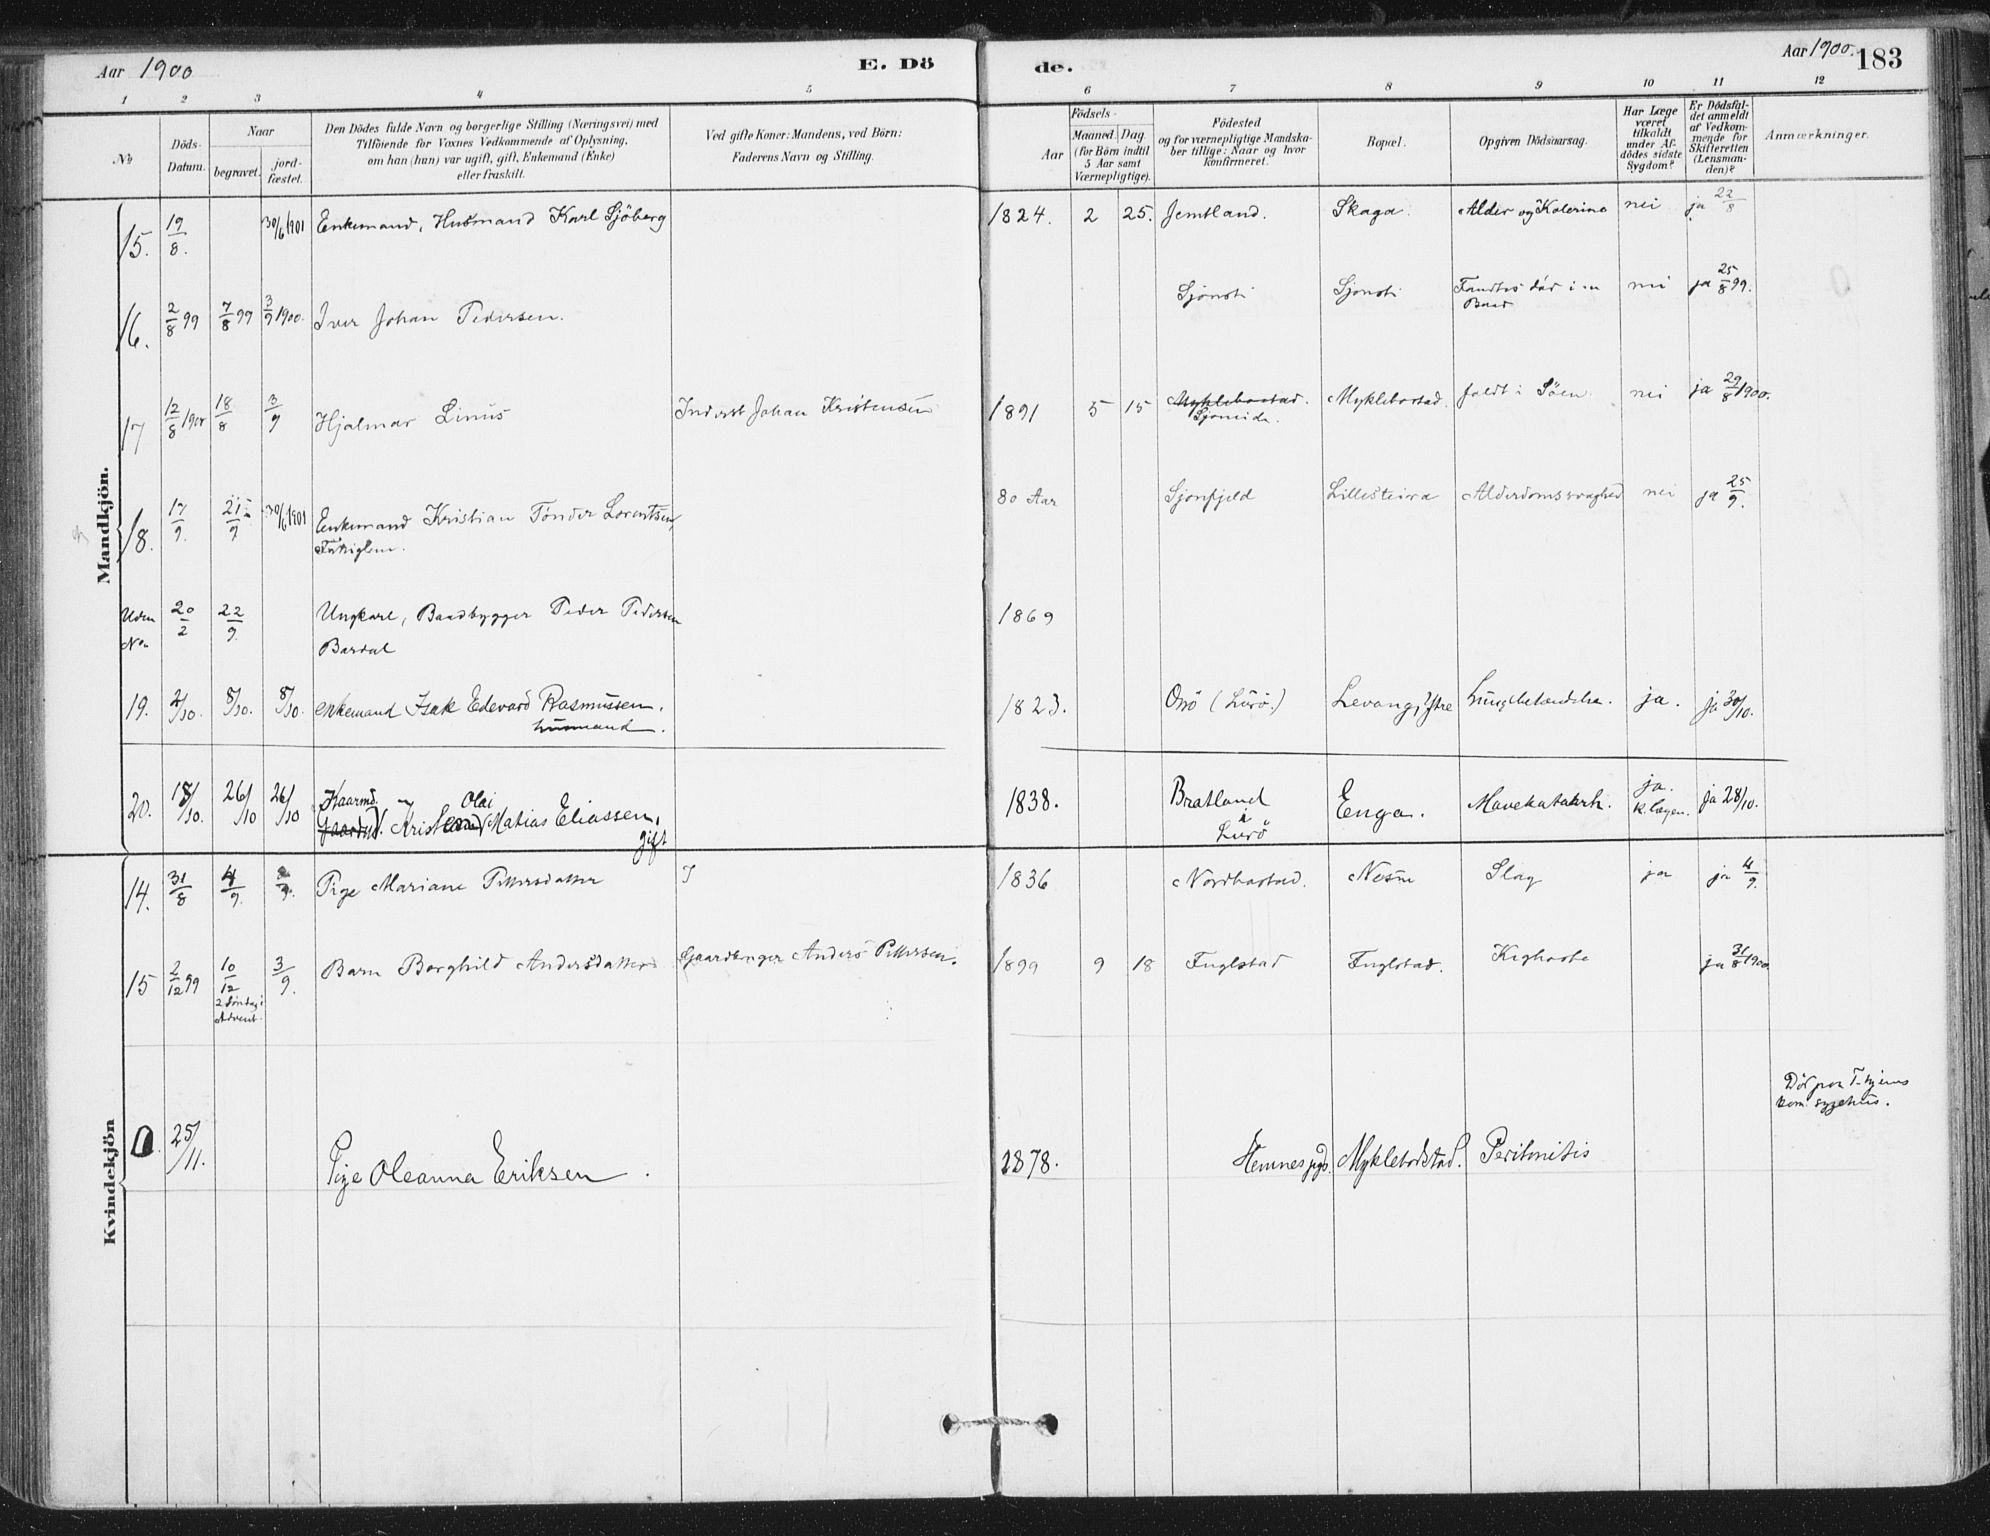 Aar 1900
E. Dö
de.
Aar 1900. 183
1 2 3 4 5 6 7 8 9 10 11 12
No
Döds-
Datum.
Naar
begravet.
jord-
fæstet.
Den Dödes fulde Navn og borgerlige Stilling (Næringsvei) med
Tilföiende for Voxnes Vedkommende af Oplysning,
om han (hun) var ugift, gift, Enkemand (Enke)
eller fraskilt.
Ved gifte Koner: Mandens, ved Börn:
Faderens Navn og Stilling.
Födsels-
Aar
Maaned. Dag.
(for Börn indtil
5 Aar samt
Værnepligtige).
Födested
og for værnepligtige Mandska-
ber tillige: Naar og hvor
konfirmeret.
Bopæl.
Opgiven Dödsaarsag.
Har Læge
været
tilkaldt
under Af-
dödes sidste
Sygdom?
Er Dödsfal-
det anmeldt
af Vedkom-
mende for
Skifteretten
(Lensman-
den)?
Anmærkninger.
Mandkjön.
15. 19/8. 30/6 1901 Enkemand, Husmand Karl Sjöberg 1824. 2 25. Jemtland. Skaga. Alder og Kolerine nei ja 22/8
16. 2/8 99 7/8 99 3/9 1900. Iver Johan Pedersen. Sjonsti Sjonsti Fandtes död i en nei ja 25/8 99.
Baad
17 12/8 1900 18/8 3/9 Hjalmar Linus Inderst Johan Kristensen 1891 5 15 Myklebostad. Myklebostad. faldt i Söen nei ja 29/8 1900.
Sjoneida.
18. 17/9. 21/9 30/6 1901 Enkemand Kristian Tönder Lorentsen, 80 Aar Sjonfjeld Lillesteira Alderdomssvaghed nei ja 25/9.
Uden 20/2 22/9. Ungkarl, Baadbygger Peder Pedersen 1869
No. Bardal
19. 2/10. 8/10. 8/10. enkemand Isak Edevard Rasmussen. 1823. Onö (Lurö.) Levang, Ytre Lungebetændelse. ja. ja 30/10.
husmand.
20. 18/10. 26/10 26/10 Kaarmd. Olai 1838. Bratland Enga. Mavekatarrh. ja. ja 28/10.
Gaardmd. Kristian Matias Eliassen, i k. lægen.
gift Lurö
Kvindekjön
14. 31/8 4/9. 9. Pige Mariane Pettersdatter 1836 Nordbostad. Nesne Slag ja ja 4/9.
15 2/12 99 10/12 3/9. Barn Borghild Andersdatter Gaardbruger Anders Pettersen. 1899 9 18 Fuglstad Fuglstad. Kighoste ja 31/8 1900.
2 Söndag i
Advent.
Död paa T.hjems
kom. sygehus.
0. 25/11. Pige Oleanna Eriksen. 1878. Hemnes pgd. Myklebostad. Peritonitis